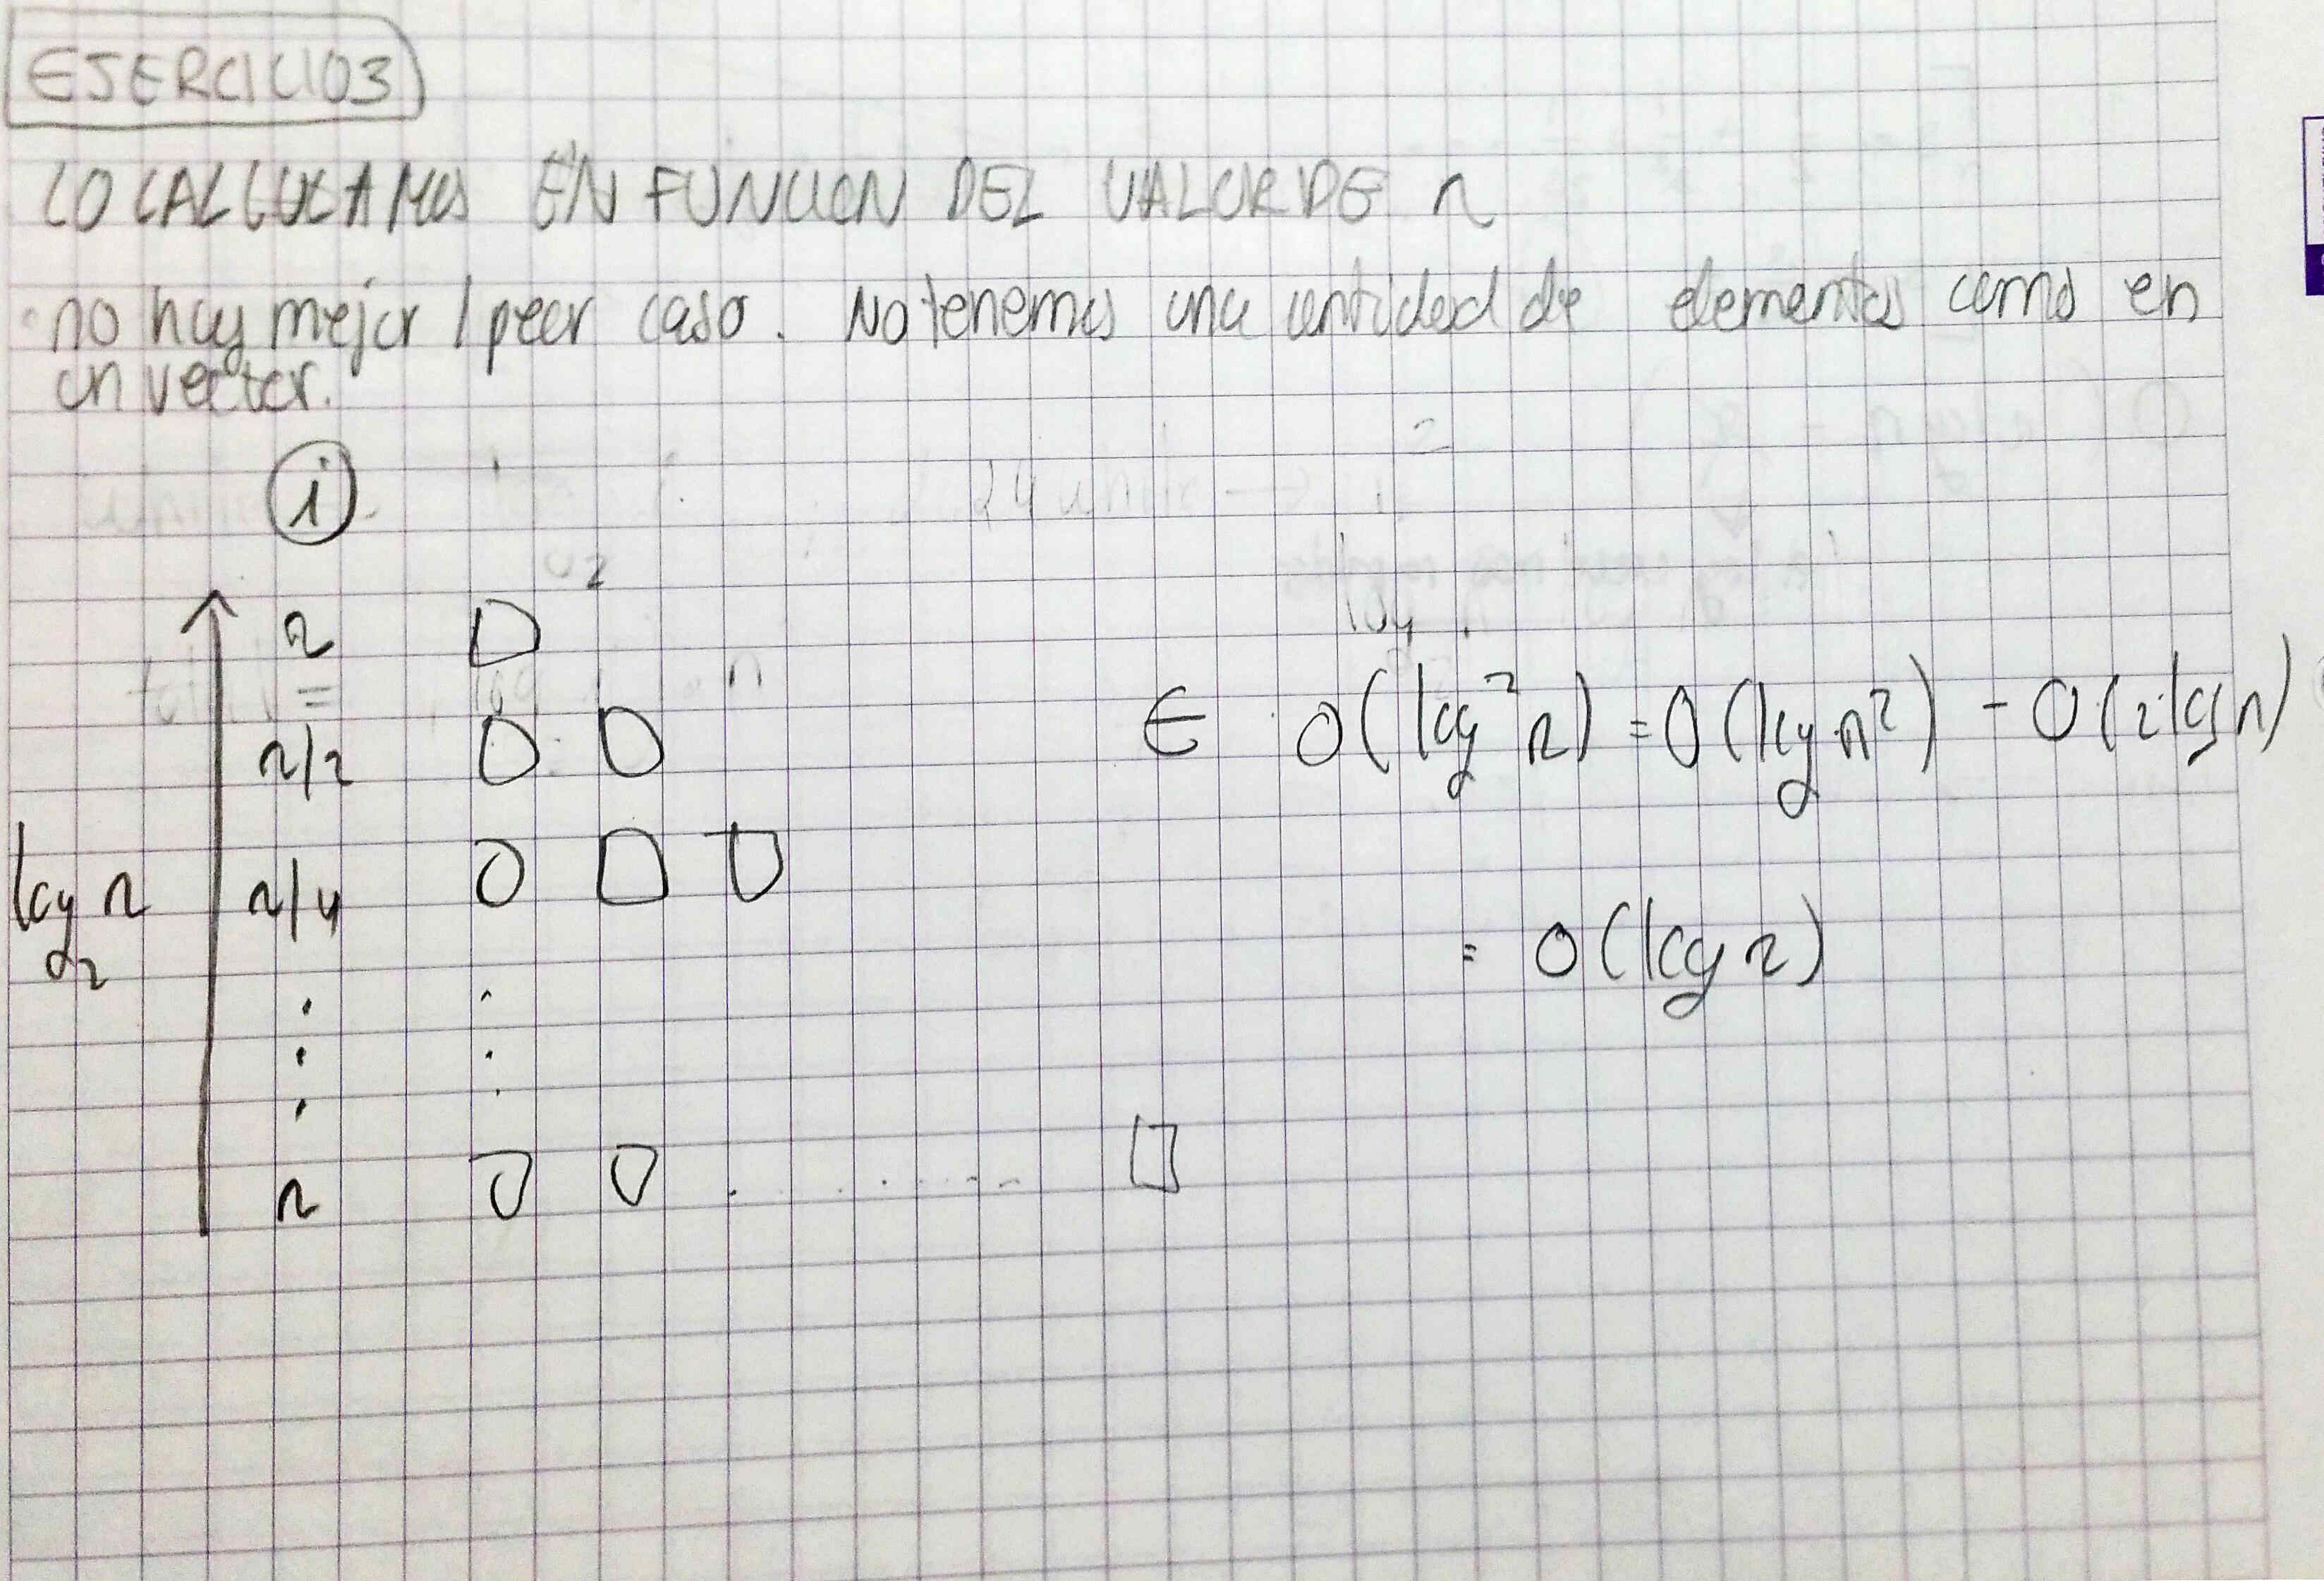 EJERCICIO3
LO CALCULAMOS EN FUNCION DEL VALOR DE n
no hay mejor / peor caso. No tenemos una cantidad de elementos como en
un vector.
i
n
n/2
n/4
n
log₂ n
∈ O(log² n) = O(log n²) - O(2·log n)
= O(log n)